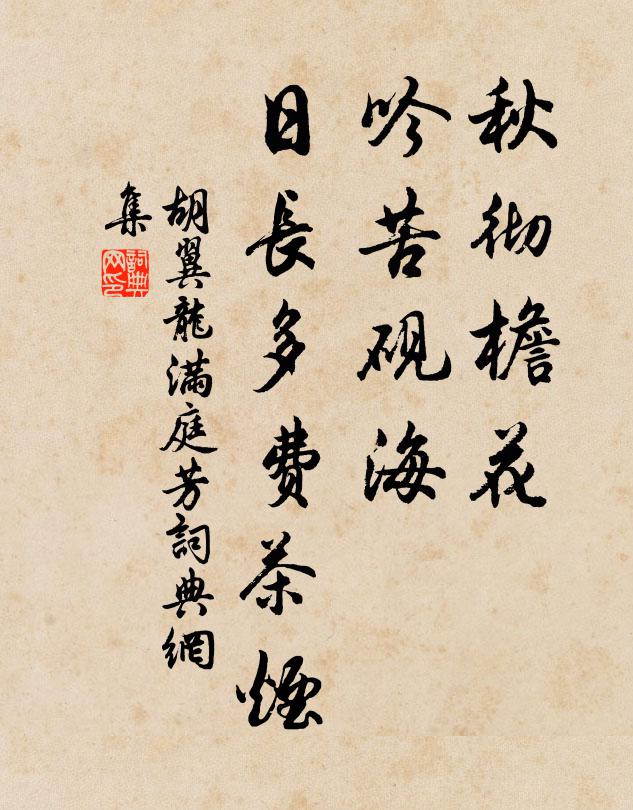 秋彻檐花
吟苦砚海
日長多費茶煙
胡翼龍滿庭芳詞典網
集
詞典
网印